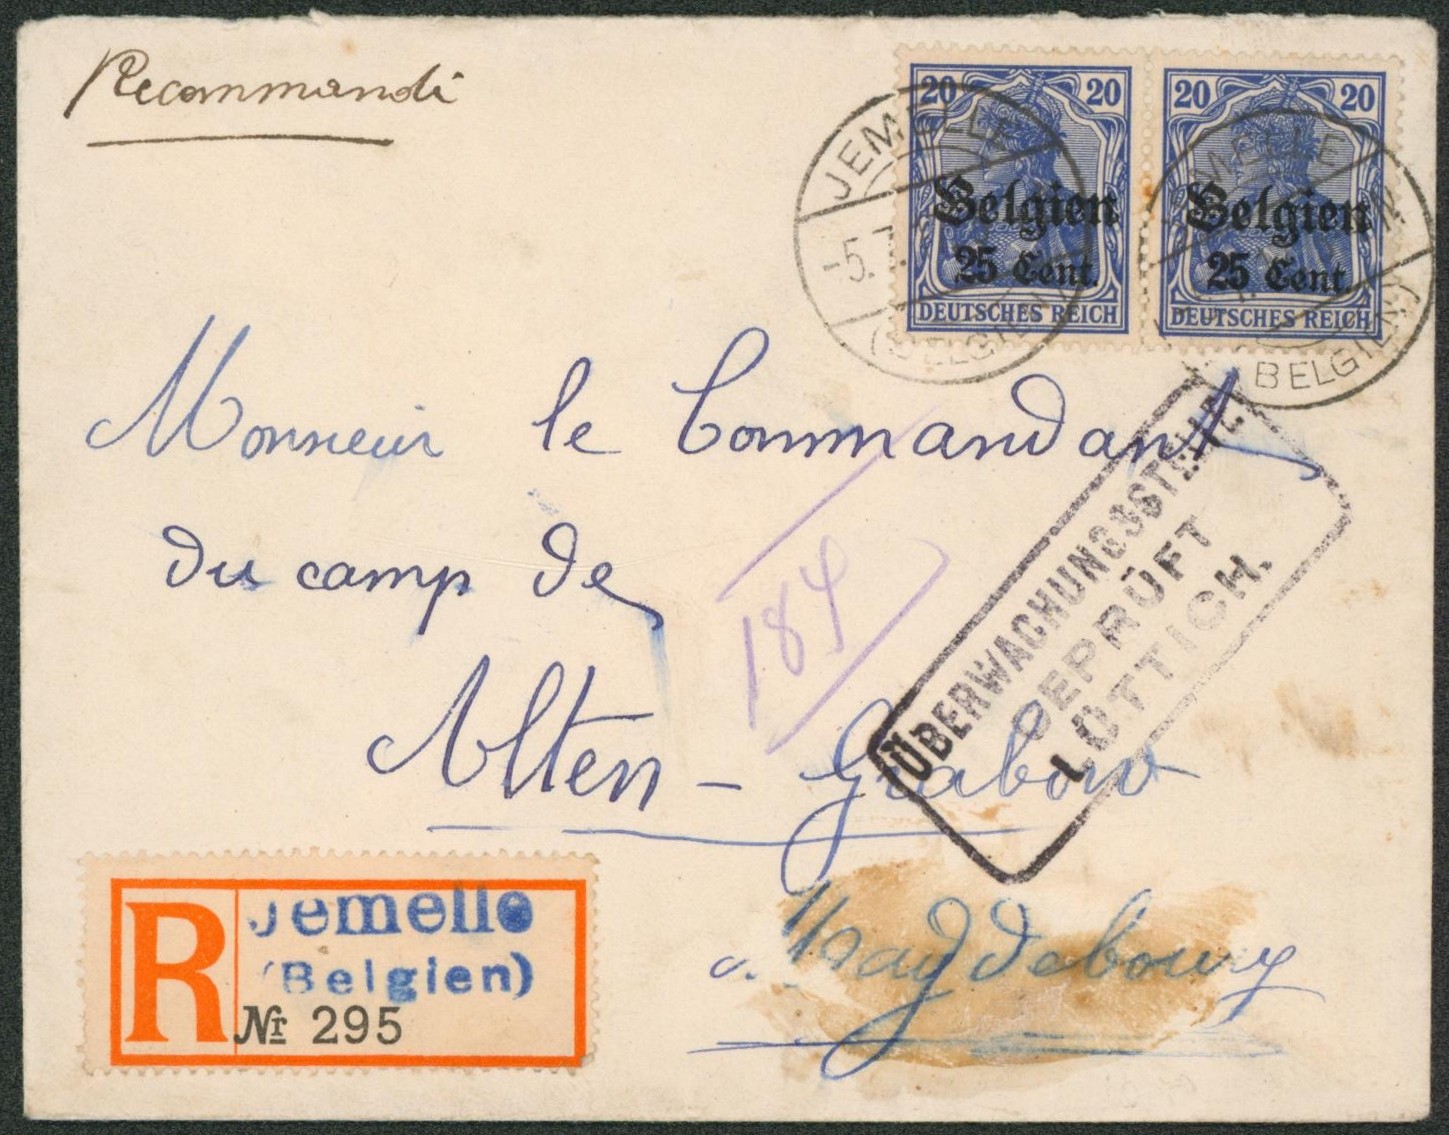 Recommandé
20 20
Belgien
25 Cent.
DEUTSCHES REICH
20 20
Belgien
25 Cent.
DEUTSCHES REICH
JEMELLE
-5.7.
(BELGIEN)
JEMELLE
(BELGIEN)
Monsieur le Commandant
du camp de
Alten-Grabow
Magdebourg
184
ÜBERWACHUNGSSTELLE
GEPRÜFT
LÜTTICH.
R
Jemelle
(Belgien)
Nr 295